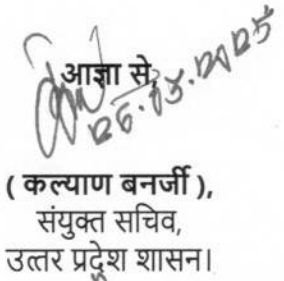 आज्ञा से,
26.03.2025
( कल्याण बनर्जी ),
संयुक्त सचिव,
उत्तर प्रदेश शासन।